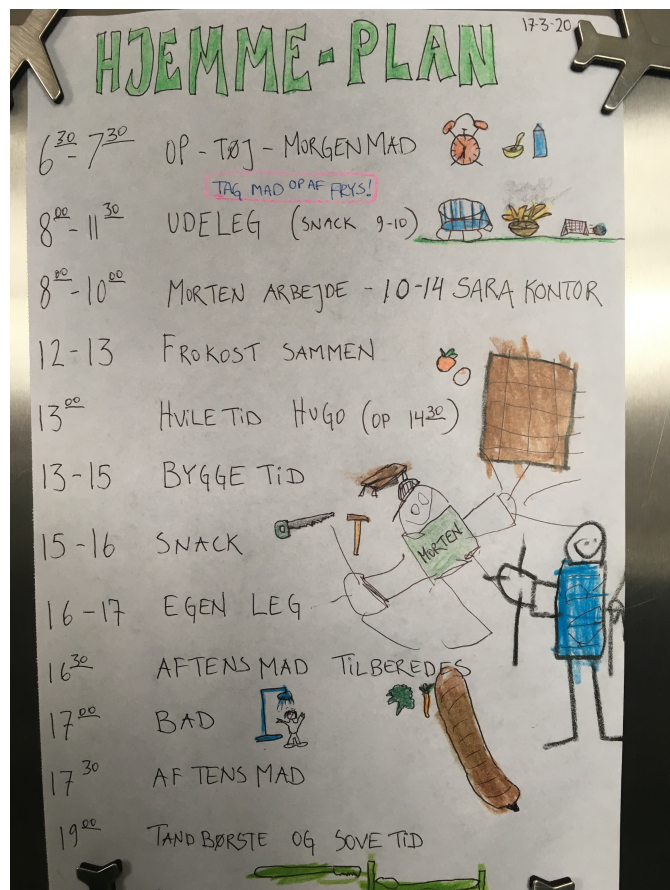 17-3-20
HJEMME-PLAN
6³⁰-7³⁰ OP - TØJ - MORGENMAD
TAG MAD OP AF FRYS!
8⁰⁰-11³⁰ UDELEG (SNACK 9-10)
8⁰⁰-10⁰⁰ MORTEN ARBEJDE - 10-14 SARA KONTOR
12-13 FROKOST SAMMEN
13⁰⁰ HVILETID HUGO (OP 14³⁰)
13-15 BYGGE TID
15-16 SNACK
MORTEN
16-17 EGEN LEG
16³⁰ AFTENSMAD TILBEREDES
17⁰⁰ BAD
17³⁰ AFTENSMAD
19⁰⁰ TANDBØRSTE OG SOVETID